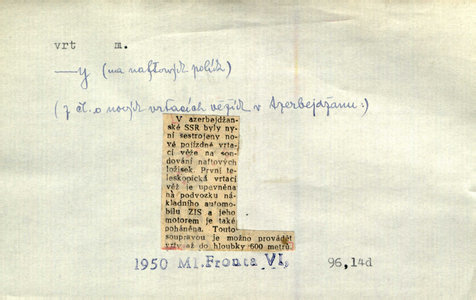 vrt m.
—y (na naftových polích)
(z čl. o nových vrtacích věžích v Azerbejdžanu:)
V azerbejdžan-
ské SSR byly ny-
ní sestrojeny no-
vé pojízdné vrta-
cí věže na son-
dování naftových
ložisek. První te-
leskopická vrtací
věž je upevněna
na podvozku ná-
kladního automo-
bilu ZIS a jeho
motorem je také
poháněna. Touto
soupravou je možno provádět
vrty až do hloubky 600 metrů.
1950 Ml. Fronta VI, 96,14d